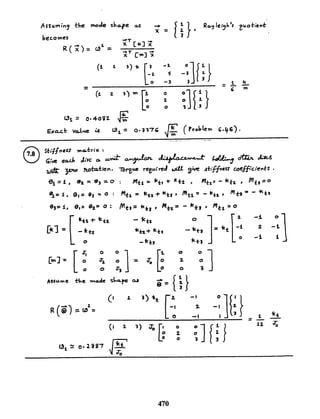 Assuming the mode shape as x⃗ = { 1 2 3 } , Rayleigh's quotient
becomes
R(x⃗) = ω² = x⃗ᵀ [k] x⃗ / x⃗ᵀ [m] x⃗
= (1 2 3) k [ 3 -2 0 -2 5 -3 0 -3 3 ] { 1 2 3 }
(1 2 3) m [ 0 0 0 0 ] { 1 2 3 }
= k / m
ω₁ = 0.4082 √ k/m
Exact value is ω₁ = 0.3376 √ k/m (Problem 6.46).
7.8 Stiffness matrix :
Give each disc a unit angular displacement holding other discs
with zero rotation. Torque required will give stiffness coefficients.
θ₁ = 1, θ₂ = θ₃ = 0 : Mt1 = kt1 + kt2 , Mt2 = - kt2 , Mt3 = 0
θ₂ = 1, θ₁ = θ₃ = 0 : Mt2 = kt2 + kt3 , Mt1 = - kt2 , Mt3 = - kt3
θ₃ = 1, θ₁ = θ₂ = 0 : Mt3 = kt3 , Mt2 = - kt3 , Mt1 = 0
[k] = [ kt1 + kt2 - kt2 0 - kt2 kt2 + kt3 - kt3 0 - kt3 kt3 ] = kt [ 2 -1 0 -1 2 -1 0 -1 1 ]
[m] = [ J₁ 0 0 0 J₂ 0 0 0 J₃ ] = J₀ [ 1 0 0 0 2 0 0 0 3 ]
Assume the mode shape as θ⃗ = { 1 2 3 }
R(θ⃗) = ω² = (1 2 3) kt [ 2 -1 0 -1 2 -1 0 -1 1 ] { 1 2 3 }
(1 2 3) J₀ [ 1 0 0 0 2 0 0 0 3 ] { 1 2 3 }
= 1/12 kt/J₀
ω₁ ≃ 0.2887 √ kt/J₀
470